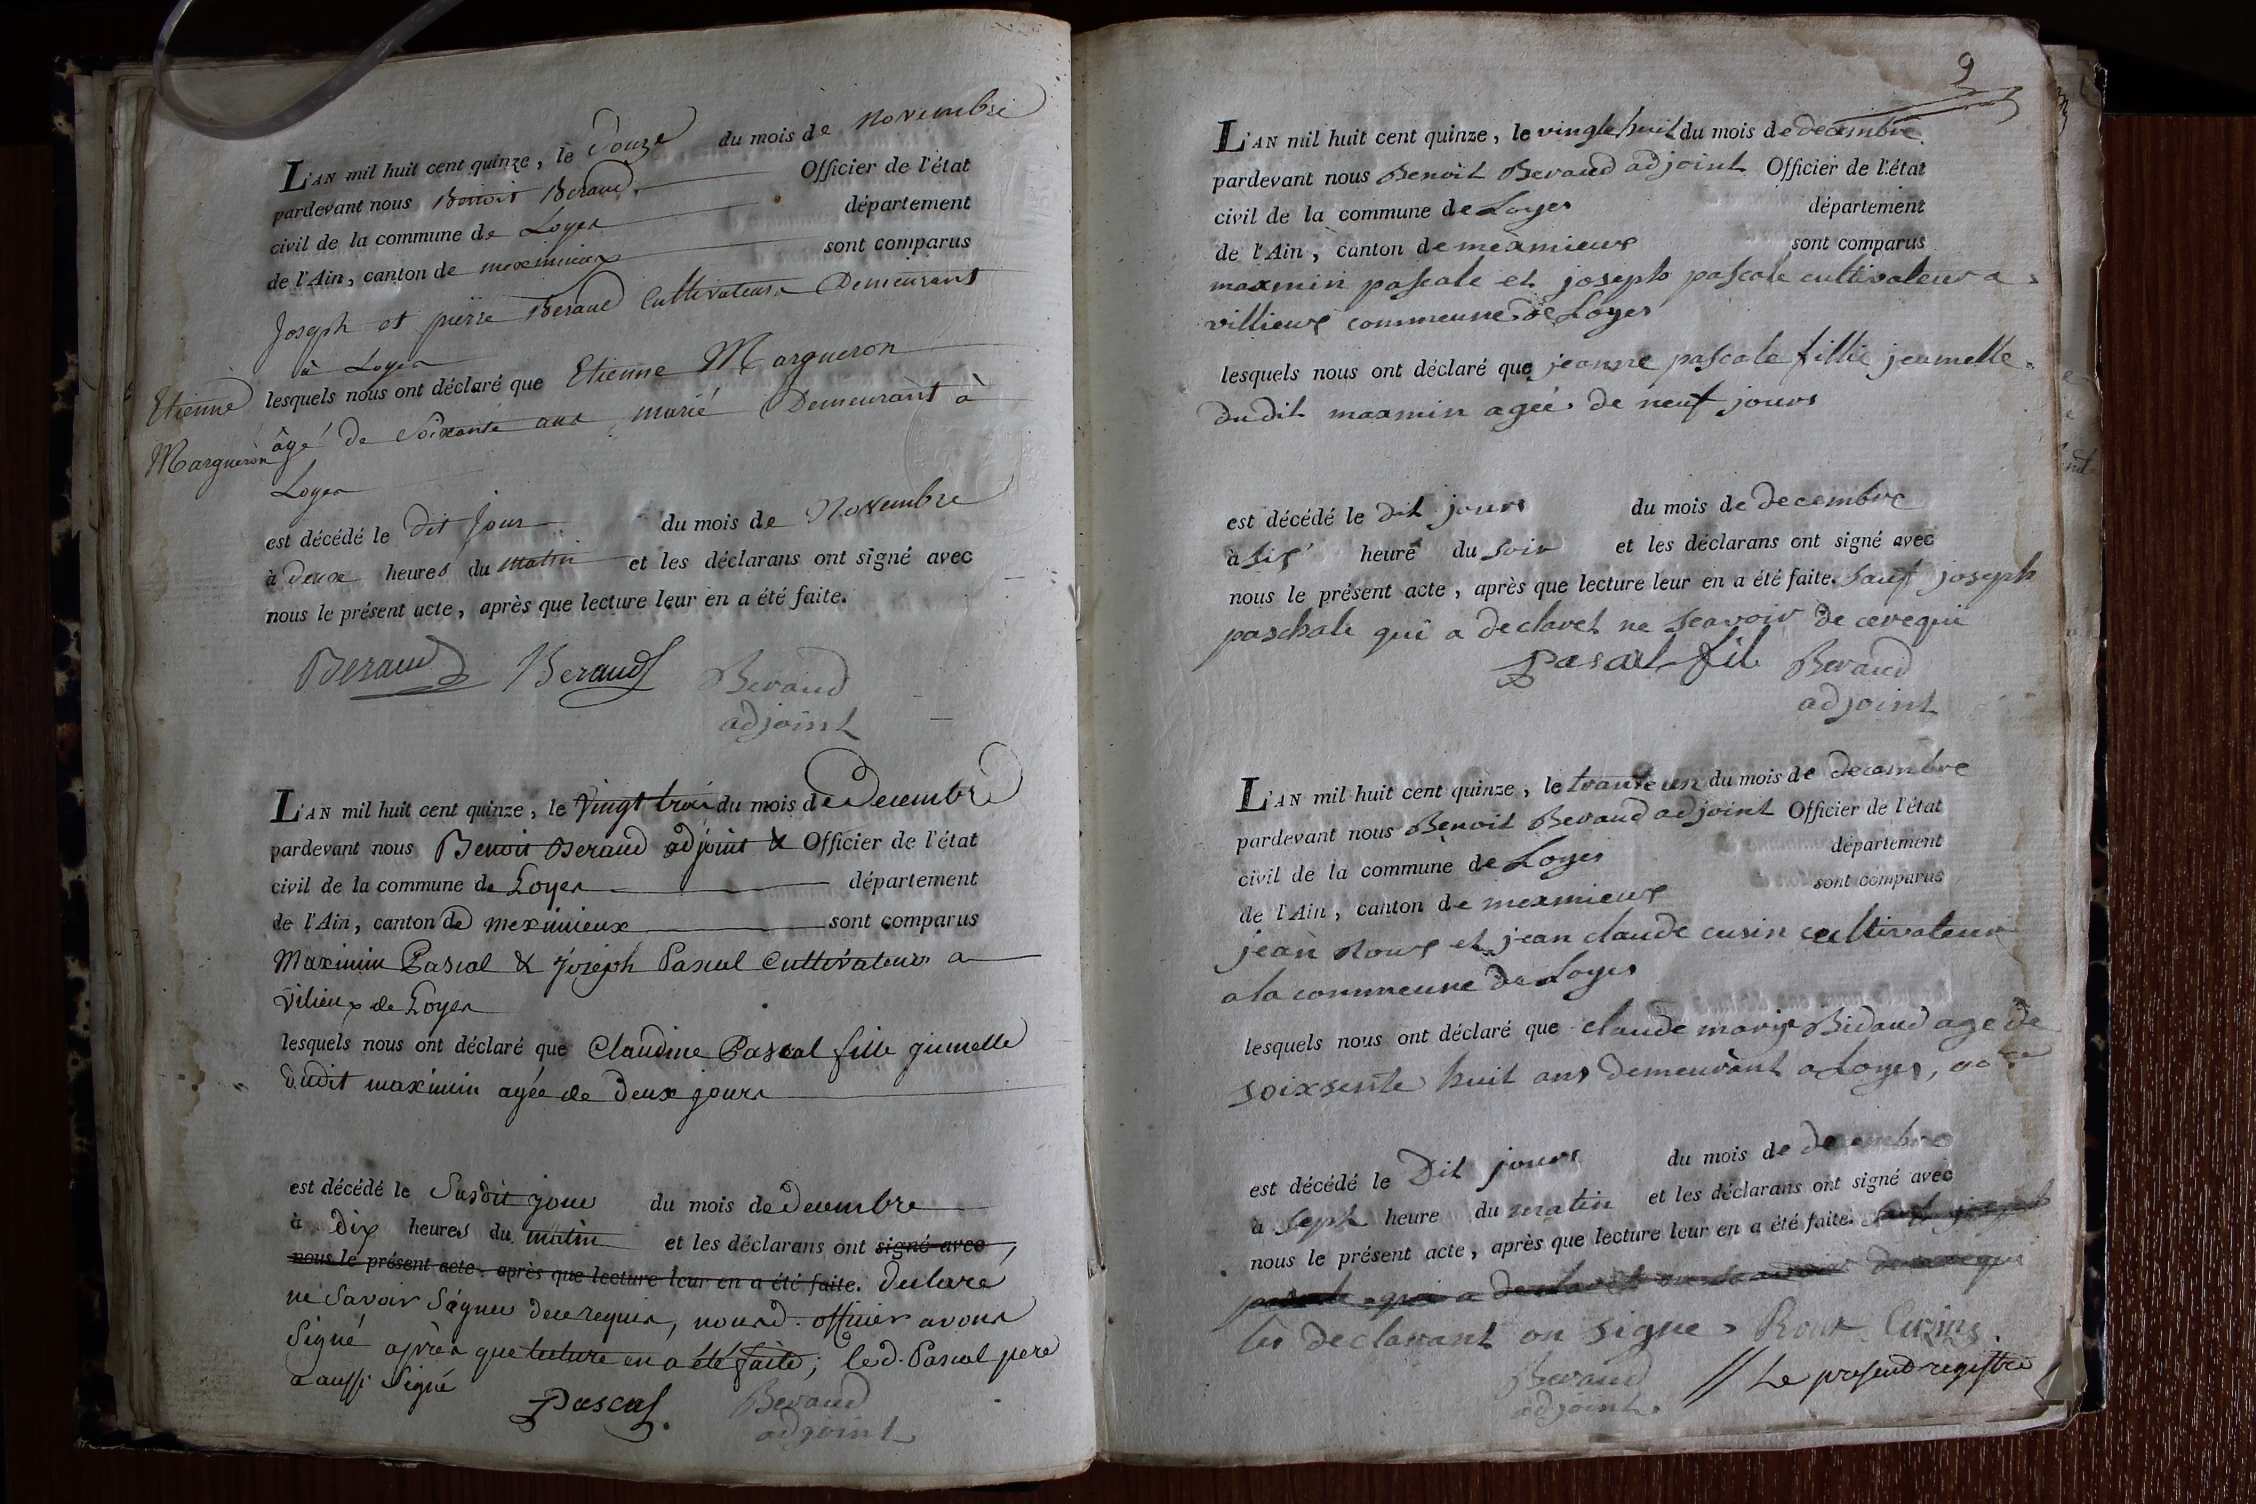 L'AN mil huit cent quinze, le Douze du mois de Novembre
pardevant nous Benoit Beraud Officier de l'état
civil de la commune de Loyes département
de l'Ain, canton de meximieux sont comparus
Joseph et pierre Beraud Cultivateurs Demeurants
à Loyes
lesquels nous ont déclaré que Etienne Margueron
Etienne
Margueron
âgé de soixante ans, marié Demeurant à
Loyes
est décédé le dit Jour du mois de Novembre
à deux heures du matin et les déclarans ont signé avec
nous le présent acte, après que lecture leur en a été faite.
Beraud Beraud Beraud
adjoint
L'AN mil huit cent quinze, le Vingt trois du mois de Decembre
pardevant nous Benoit Beraud adjoint & Officier de l'état
civil de la commune de Loyes département
de l'Ain, canton de meximieux sont comparus
Maximin Pascal & Joseph Pascal Cultivateurs a
Vilieux de Loyes
lesquels nous ont déclaré que Claudine Pascal fille gimelle
dudit maximin agée de Deux jours
est décédé le Susdit jour du mois de Decembre
à Dix heures du matin et les déclarans ont signé avec
nous le présent acte, après que lecture leur en a été faite. declaré
ne Savoir Signer de ce requis, nousd. officier avons
Signé après que lecture en a été faite; led. Pascal pere
a aussi Signé
Pascal Beraud
adjoint
9
L'AN mil huit cent quinze, le vingle huit du mois de decembre
pardevant nous Benoit Beraud adjoint Officier de l'état
civil de la commune de Loyes département
de l'Ain, canton de meximieux sont comparus
maxmin pascale et joseph pascale cultivateur a
villieux commeune de Loyes
lesquels nous ont déclaré que jeanne pascale fillie jeumelle
dudit maxmin agée de neuf jours
est décédé le dit jours du mois de decembre
à six heure du soir et les déclarans ont signé avec
nous le présent acte, après que lecture leur en a été faite. sauf joseph
paschale qui a declaret ne scavoir de cerequi
Pascal fil Beraud
adjoint
L'AN mil huit cent quinze, le trante un du mois de decembre
pardevant nous Benoit Beraud adjoint Officier de l'état
civil de la commune de Loyes département
de l'Ain, canton de mexmieux sont comparus
jean Roux et jean claude cusin cultivateur
a la commeune de Loyes
lesquels nous ont déclaré que claude marie Bidaud age de
soixsente huit ans demeurant a Loyes,
est décédé le Dit jours du mois de decembre
à sept heure du matin et les déclarans ont signé avec
nous le présent acte, après que lecture leur en a été faite. sauf joseph
qui a declaret
les declarant on signe Roux Cusin
Beraud
adjoint. // Le present registre